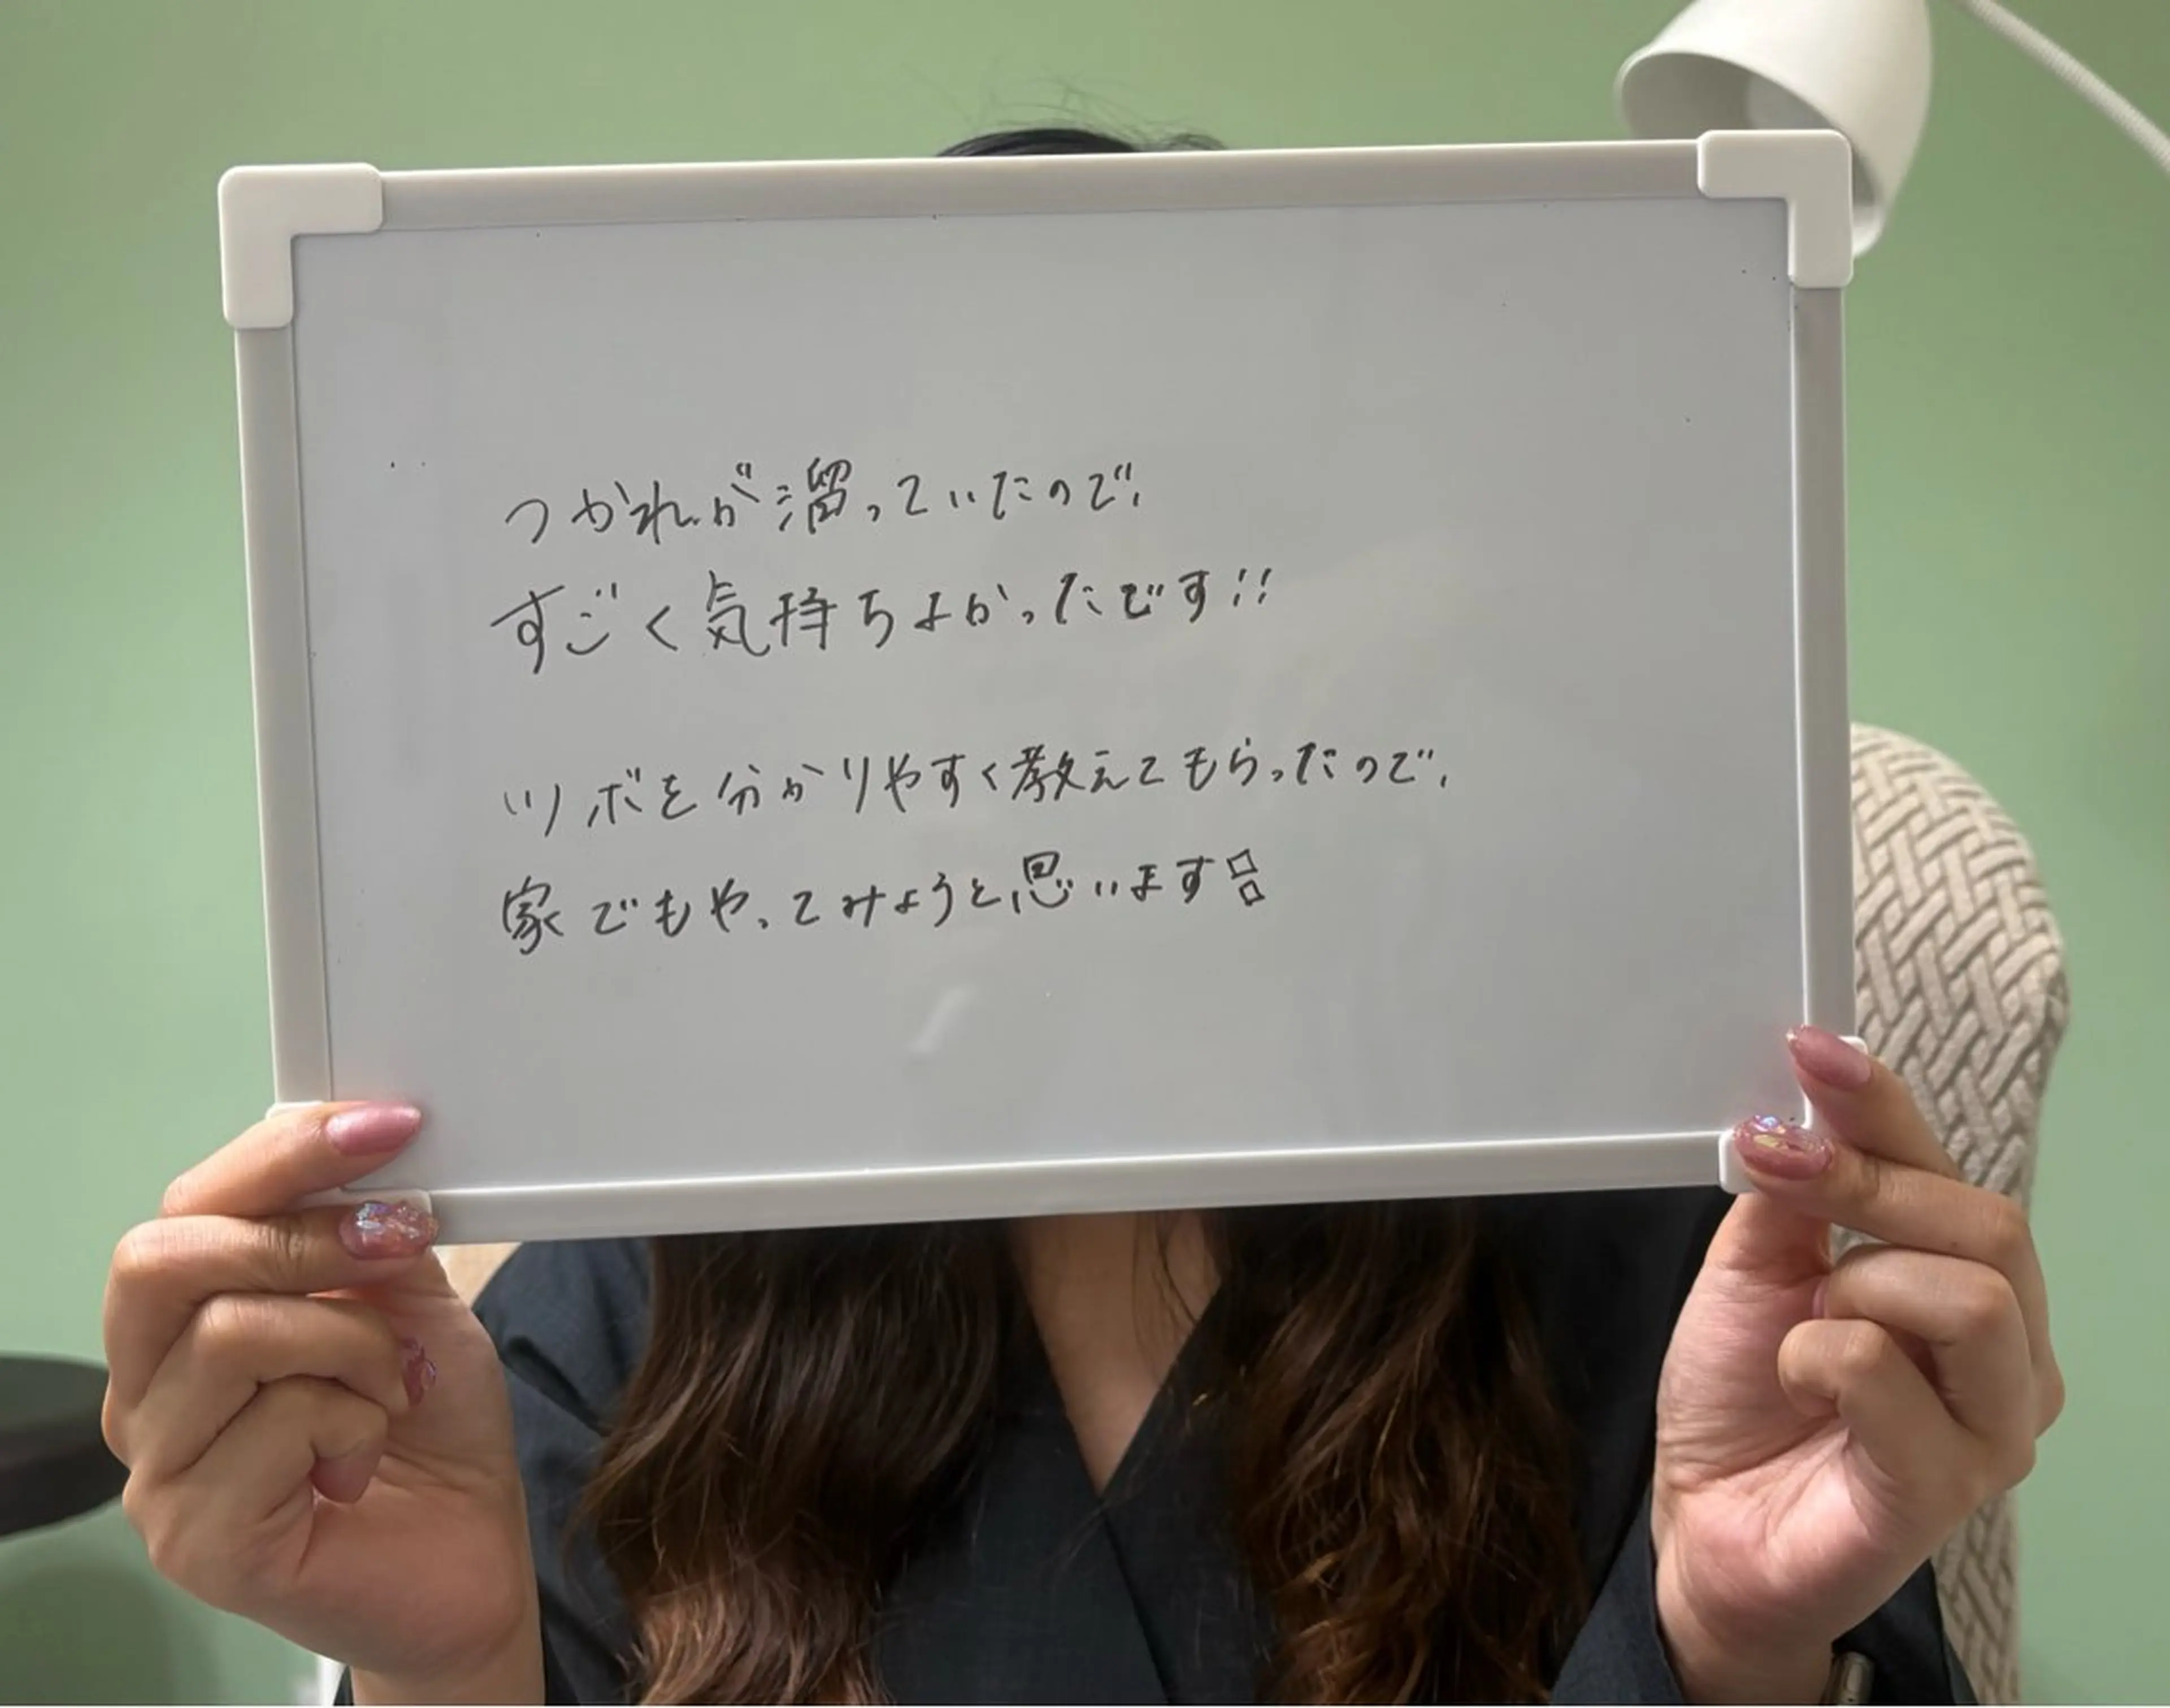 つかれが溜っていたので、
すごく気持ちよかったです!!
ツボを分かりやすく教えてもらったので、
家でもやってみようと思います